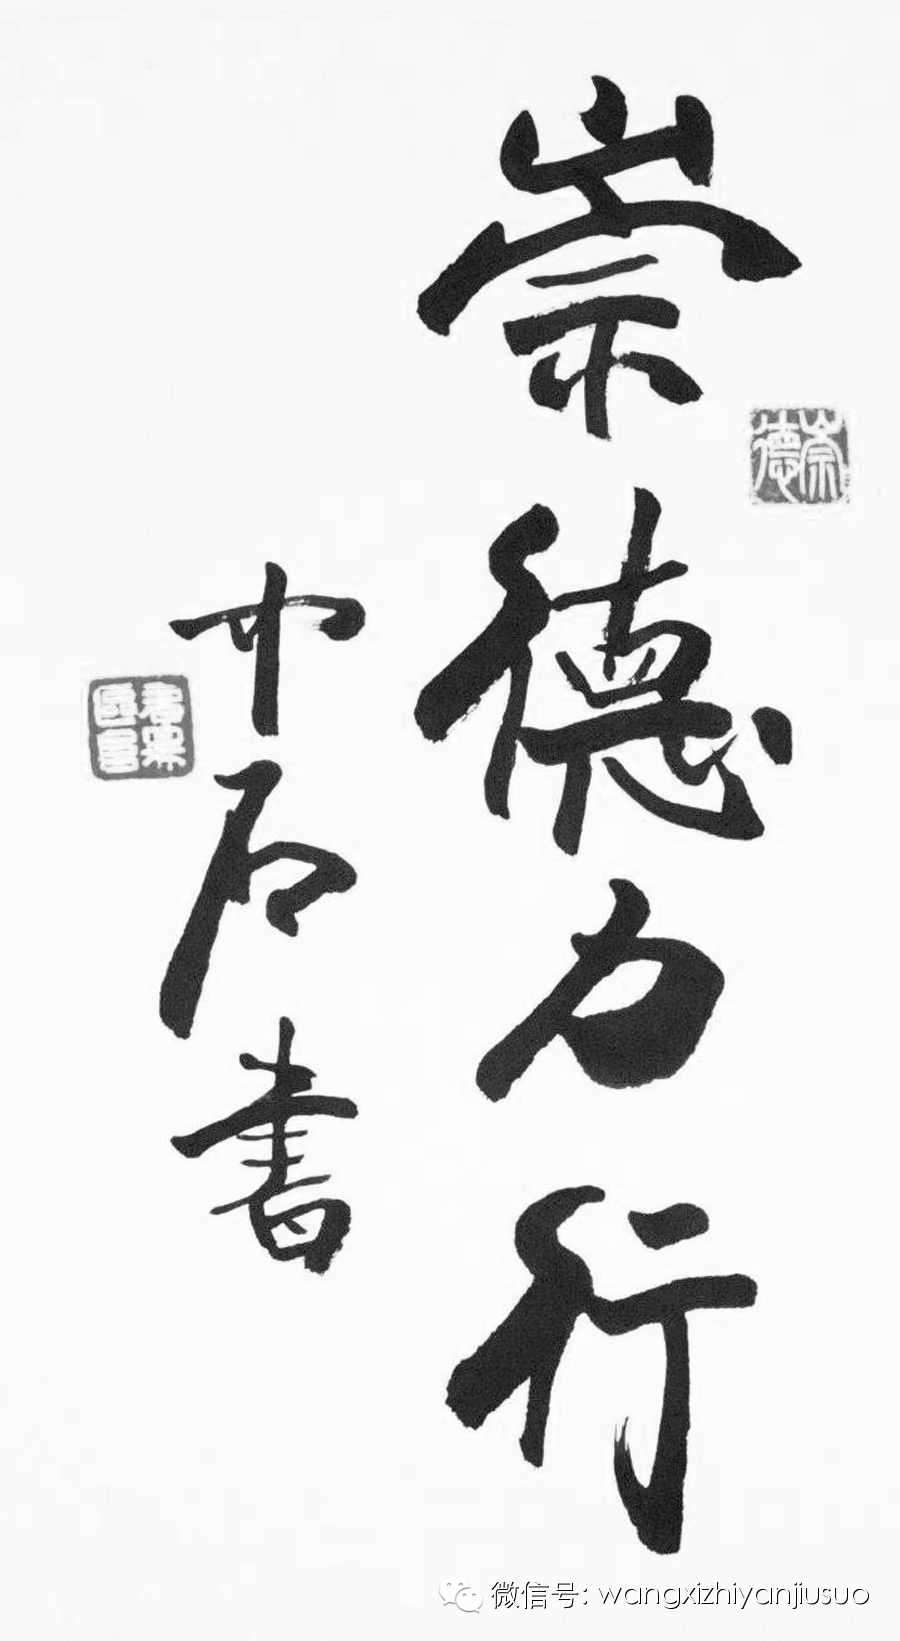 崇德力行
崇德
中石书
微信号: wangxizhiyanjiusuo